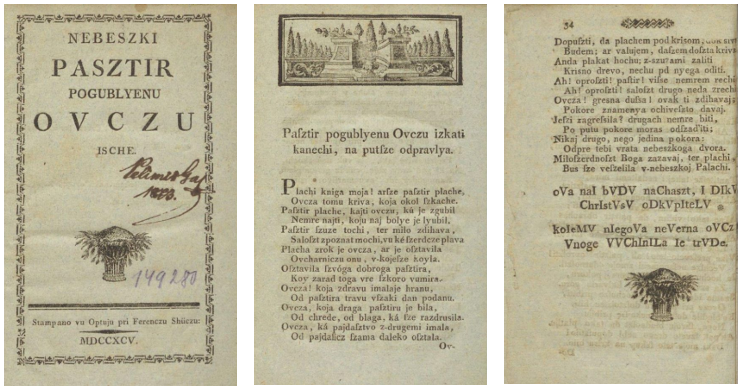 NEBESZKI
PASZTIR
POGUBLYENU
OVCZU
ISCHE.
149280
Stampano vu Optuju pri Ferenczu Shüczu:
MDCCXCV.
Paſztir pogublyenu Ovczu izkati
kanechi, na putſze odpravlya.
Plachi kniga moja! arſze paſztir plache,
Ovcza tomu kriva, koja okol ſzkache.
Paſztir plache, hajti ovcze, ká je zgubil
Nemre najti, koju naj bolye je lyubil.
Paſztir ſzuze tochi, ter milo zdihava,
Saloſzt zpoznaſt mochi, vu ké ſzerdcze plava
Placha zrok je ovcza, ar je oſztavila
Ovcharniczu onu, v-kojeſze koyla.
Oſztavila ſzvóga dobroga paſztira,
Koy zarad toga vre ſzkoro vumira.
Ovcza! koja zdravu imalaje hranu,
Od paſztira travu vſzaki dan podanu.
Ovcza, koja draga paſztiru je bila,
Od chrede, od blaga, ká ſze razdrusila.
Ovcza, ká pajdaſztvo z-drugemi imala,
Od pajdaſicz ſzama daleko oſztala.
Ov-
34
Dopuſzti, da plachem pod krisom,
Budem; ar valujem, daſzem doſzta kriv
Anda plakat hochu; z-szuzami zaliti
Krisno drevo, nechu pd nyega oditi.
Ah! oproſzti! paſtir! viſſe nemrem rechi
Ah! oproſzti! saloſzt drugo neda zrechi
Ovcza! gresna duſsa! ovak ti zdihavaj;
Pokore znamenya ochiveſzto davaj.
Jeſzi zagreſsila? drugach nemre biti,
Po putu pokore moras odſzaditi;
Nikaj drugo, nego jedina pokora:
Odpre tebi vrata nebeszkoga dvora.
Miloſzerdnoſzt Boga zazavaj, ter plachi,
Bus ſze veſzelila v-nebeszkoj Palachi.
oVa naI bVDV naChaszt, I DIkV
ChrIstVsV oDkVpIteLV
koIeMV nIegoVa neVerna oVCz
Vnoge VVChInILa Ie trVDe.